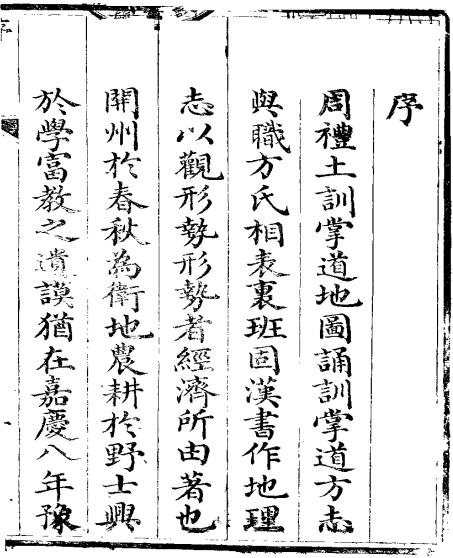 序
周禮土訓掌道地圖誦訓掌道方志
與職方氏相表裏班固漢書作地理
志以觀形勢形勢者經濟所由著也
開州於春秋為衛地農耕於野士興
於學富教之遺謨猶在嘉慶八年豫